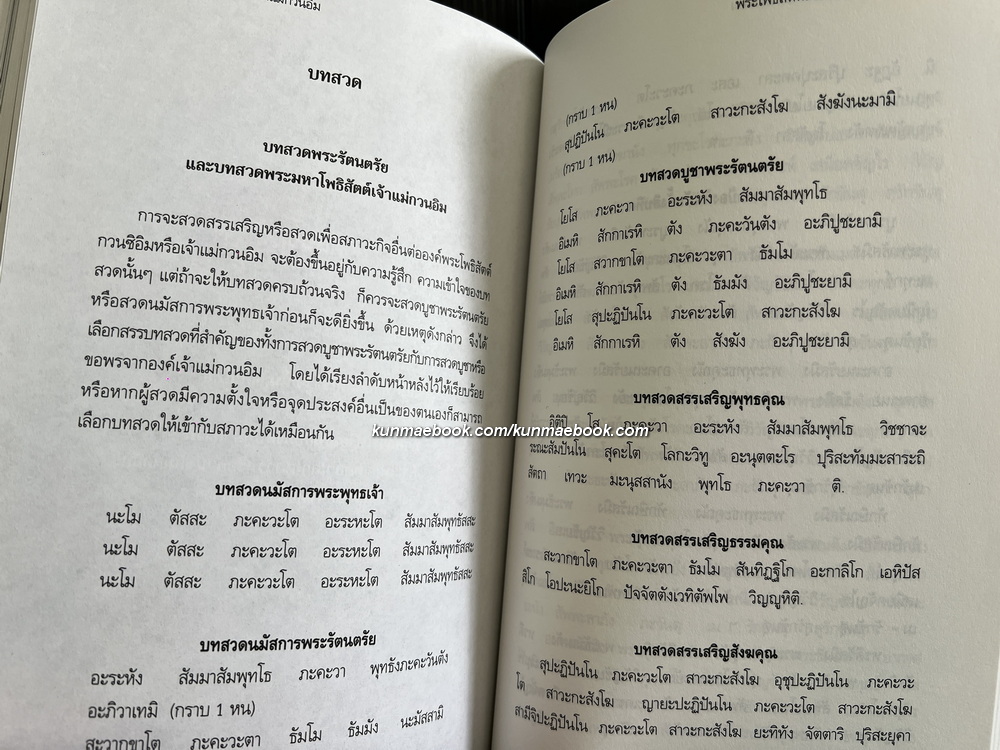 บทสวด
บทสวดพระรัตนตรัย
และบทสวดพระมหาโพธิสัตต์เจ้าแม่กวนอิม
การจะสวดสรรเสริญหรือสวดเพื่อสภาวะกิจอื่นต่อองค์พระโพธิสัตต์
กวนซีอิมหรือเจ้าแม่กวนอิม จะต้องขึ้นอยู่กับความรู้สึก ความเข้าใจของบท
สวดนั้นๆ แต่ถ้าจะให้บทสวดครบถ้วนจริง ก็ควรจะสวดบูชาพระรัตนตรัย
หรือสวดนมัสการพระพุทธเจ้าก่อนก็จะดียิ่งขึ้น ด้วยเหตุดังกล่าว จึงได้
เลือกสรรบทสวดที่สำคัญของทั้งการสวดบูชาพระรัตนตรัยกับการสวดบูชาหรือ
ขอพรจากองค์เจ้าแม่กวนอิม โดยได้เรียงลำดับหน้าหลังไว้ให้เรียบร้อย
หรือหากผู้สวดมีความตั้งใจหรือจุดประสงค์อื่นเป็นของตนเองก็สามารถ
เลือกบทสวดให้เข้ากับสภาวะได้เหมือนกัน
บทสวดนมัสการพระพุทธเจ้า
นะโม ตัสสะ ภะคะวะโต อะระหะโต สัมมาสัมพุทธัสสะ
นะโม ตัสสะ ภะคะวะโต อะระหะโต สัมมาสัมพุทธัสสะ
นะโม ตัสสะ ภะคะวะโต อะระหะโต สัมมาสัมพุทธัสสะ
บทสวดนมัสการพระรัตนตรัย
อะระหัง สัมมาสัมพุทโธ ภะคะวา พุทธังภะคะวันตัง
อะภิวาเทมิ (กราบ 1 หน)
สะวากขาโต ภะคะวะตา ธัมโม ธัมมัง นะมัสสามิ
(กราบ 1 หน)
สุปฏิปันโน ภะคะวะโต สาวะกะสังโฆ สังฆังนะมามิ
(กราบ 1 หน)
บทสวดบูชาพระรัตนตรัย
โยโส ภะคะวา อะระหัง สัมมาสัมพุทโธ
อิเมหิ สักกาเรหิ ตัง ภะคะวันตัง อะภิปูชะยามิ
โยโส สวากขาโต ภะคะวะตา ธัมโม
อิเมหิ สักกาเรหิ ตัง ธัมมัง อะภิปูชะยามิ
โยโส สุปะฏิปันโน ภะคะวะโต สาวะกะสังโฆ
อิเมหิ สักกาเรหิ ตัง สังฆัง อะภิปูชะยามิ
บทสวดสรรเสริญพุทธคุณ
อิติปิ โส ภะคะวา อะระหัง สัมมาสัมพุทโธ วิชชาจะ
kunmaebook.com/kunmaebook.com
ระณะสัมปันโน สุคะโต โลกะวิทู อะนุตตะโร ปุริสะทัมมะสาระถิ
สัตถา เทวะ มะนุสสานัง พุทโธ ภะคะวา ติ.
บทสวดสรรเสริญธรรมคุณ
สะวากขาโต ภะคะวะตา ธัมโม สันทิฏฐิโก อะกาลิโก เอหิปัส
สิโก โอปะนะยิโก ปัจจัตตังเวทิตัพโพ วิญญูหิติ.
บทสวดสรรเสริญสังฆคุณ
สุปะฏิปันโน ภะคะวะโต สาวะกะสังโฆ อุชุปะฏิปันโน ภะคะวะ
โต สาวะกะสังโฆ ญายะปะฏิปันโน ภะคะวะโต สาวะกะสังโฆ
สามีจิปะฏิปันโน ภะคะวะโต สาวะกะสังโฆ ยะทิทัง จัตตาริ ปุริสะยุคา